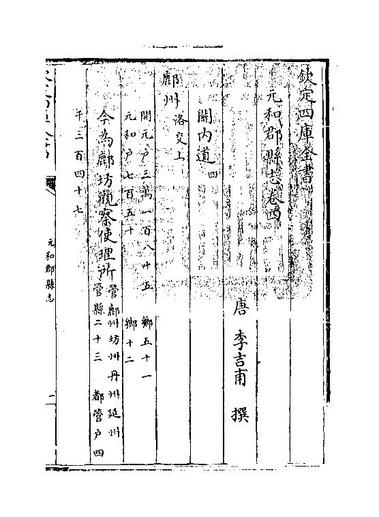 欽定四庫全書
元和郡縣志卷四
唐 李吉甫 撰
關内道四
鄜州 洛交上
開元户三萬一百八十五 鄉五十一
元和户七百五十 鄉十二
今為鄜坊觀察使理所 管鄜州坊州丹州延州
管縣二十三 都管户四
千三百四十七
元和郡縣志
一